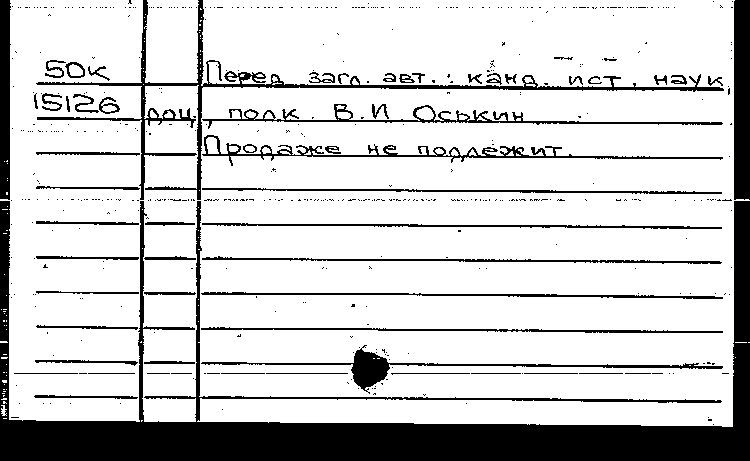 50к Перед загл. авт.: канд. ист. наук,
15126 доц., полк. В.И. Оськин
Продаже не подлежит.